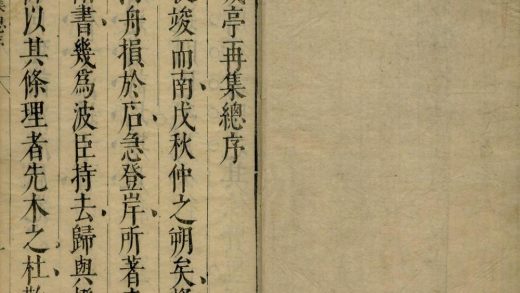 亭再集總序
竣而南戊秋仲之朔矣
舟損於石急登岸所著
書幾爲波臣持去歸與
以其條理者先木之杜